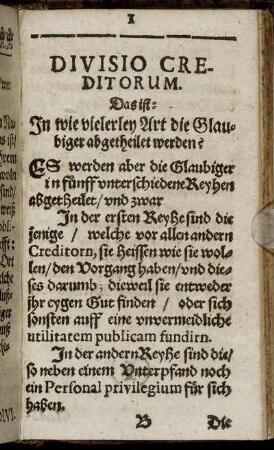 1
DIVISIO CRE-
DITORUM.
Das ist:
In wie vielerley Art die Glau-
biger abgetheilet werden?
ES werden aber die Glaubiger
in fünff vnterschiedene Reyhen
abgetheilet/vnd zwar
In der ersten Reyhe sind die
jenige / welche vor allen andern
Creditorn, sie heissen wie sie wol-
len/den Vorgang haben/vnd die-
ses darumb; dieweil sie entweder
jhr eygen Gut finden / oder sich
sonsten auff eine vnvermeidliche
utilitatem publicam fundirn.
In der andern Reyhe sind die/
so neben einem Vnterpfand noch
ein Personal privilegium für sich
haben.
B Die